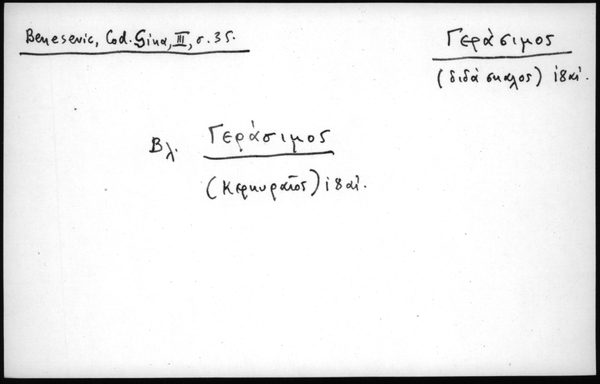 Benesevic, Cod. Sina, III, σ. 35.
Γεράσιμος
(διδάσκαλος) ι8 αἰ.
Βλ. Γεράσιμος
(Κερκυραῖος) ι8 αἰ.